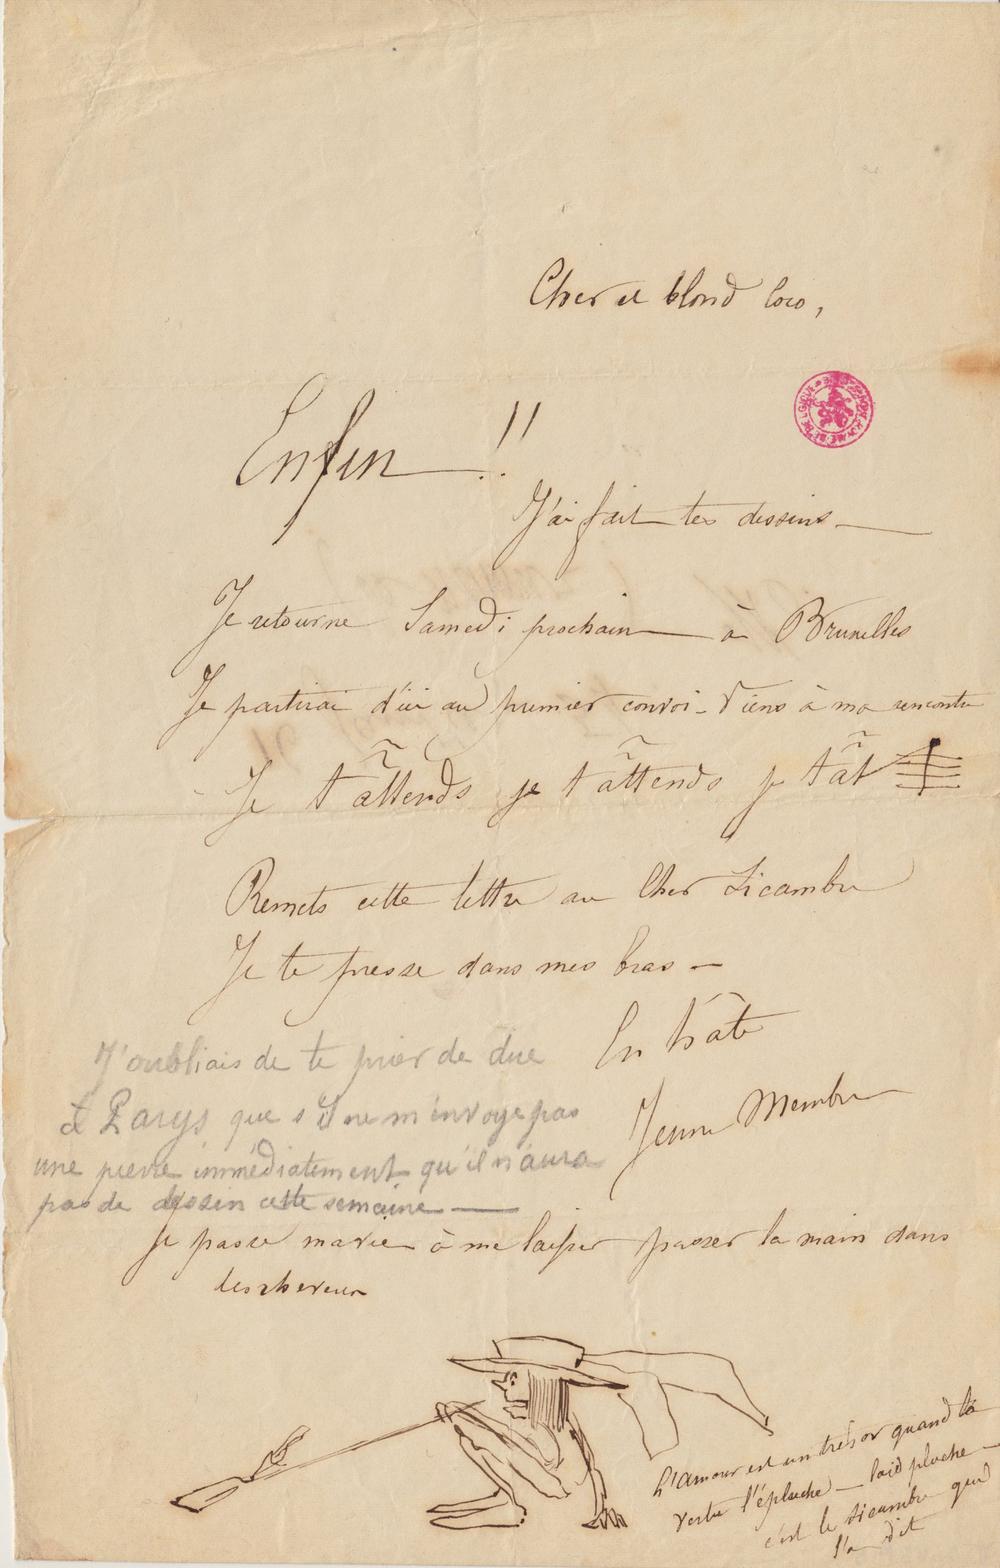 Cher et blond loco,
Enfin !!
J'ai fait tes dessins
Je retourne Samedi prochain à Bruxelles
Je partirai d'ici au premier convoi - Viens à ma rencontre
Je t'âttends je t'âttends je t'ât
Remets cette lettre au Cher Sicambre
Je te presse dans mes bras -
En hâte
Jeune Membre
J'oubliais de te prier de dire
à Parys que s'il ne m'envoye pas
une pierre immédiatement qu'il n'aura
pas de dessin cette semaine
Je passe ma vie à me laisser passer la main dans
les cheveux
L'amour est un trésor quand la
vertu l'épluche - laid pluche -
c'est le sicambre qui
l'a dit